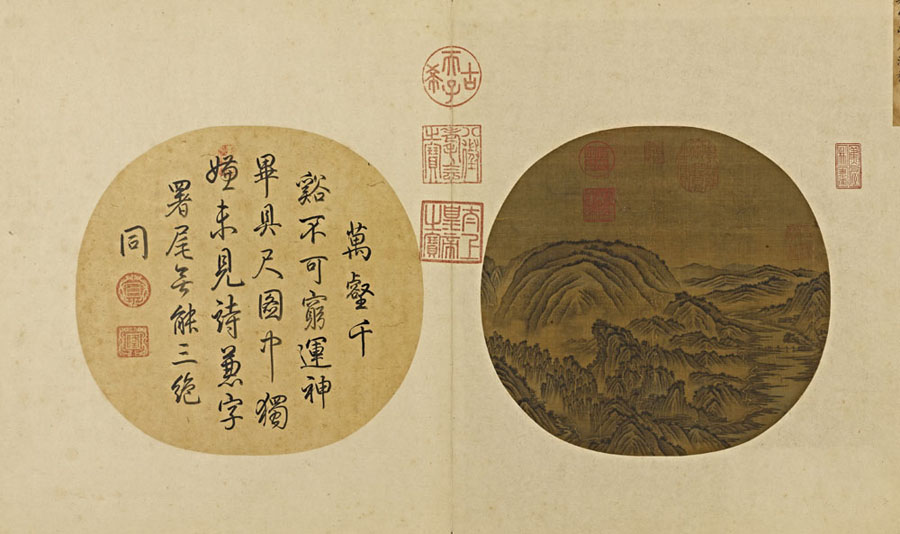 萬壑千
谿不可窮運神
畢具尺圖中獨
嫌未見詩兼字
署尾無能三絶
同
古希天子
八徵耄念之寶
太上皇帝之寶